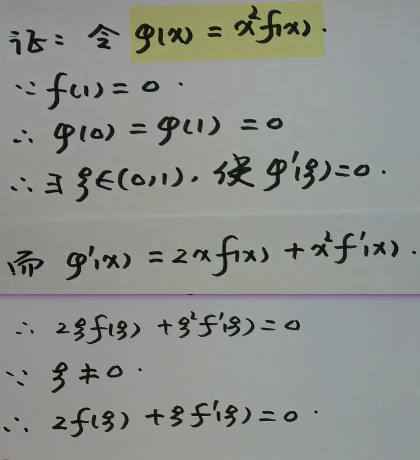 证: 令 φ(x) = x²f(x).
∵ f(1) = 0 .
∴ φ(0) = φ(1) = 0
∴ ∃ ξ∈(0,1), 使 φ'(ξ)=0 .
而 φ'(x) = 2xf(x) + x²f'(x) .
∴ 2ξf(ξ) + ξ²f'(ξ) = 0
∵ ξ ≠ 0 .
∴ 2f(ξ) + ξf'(ξ) = 0 .